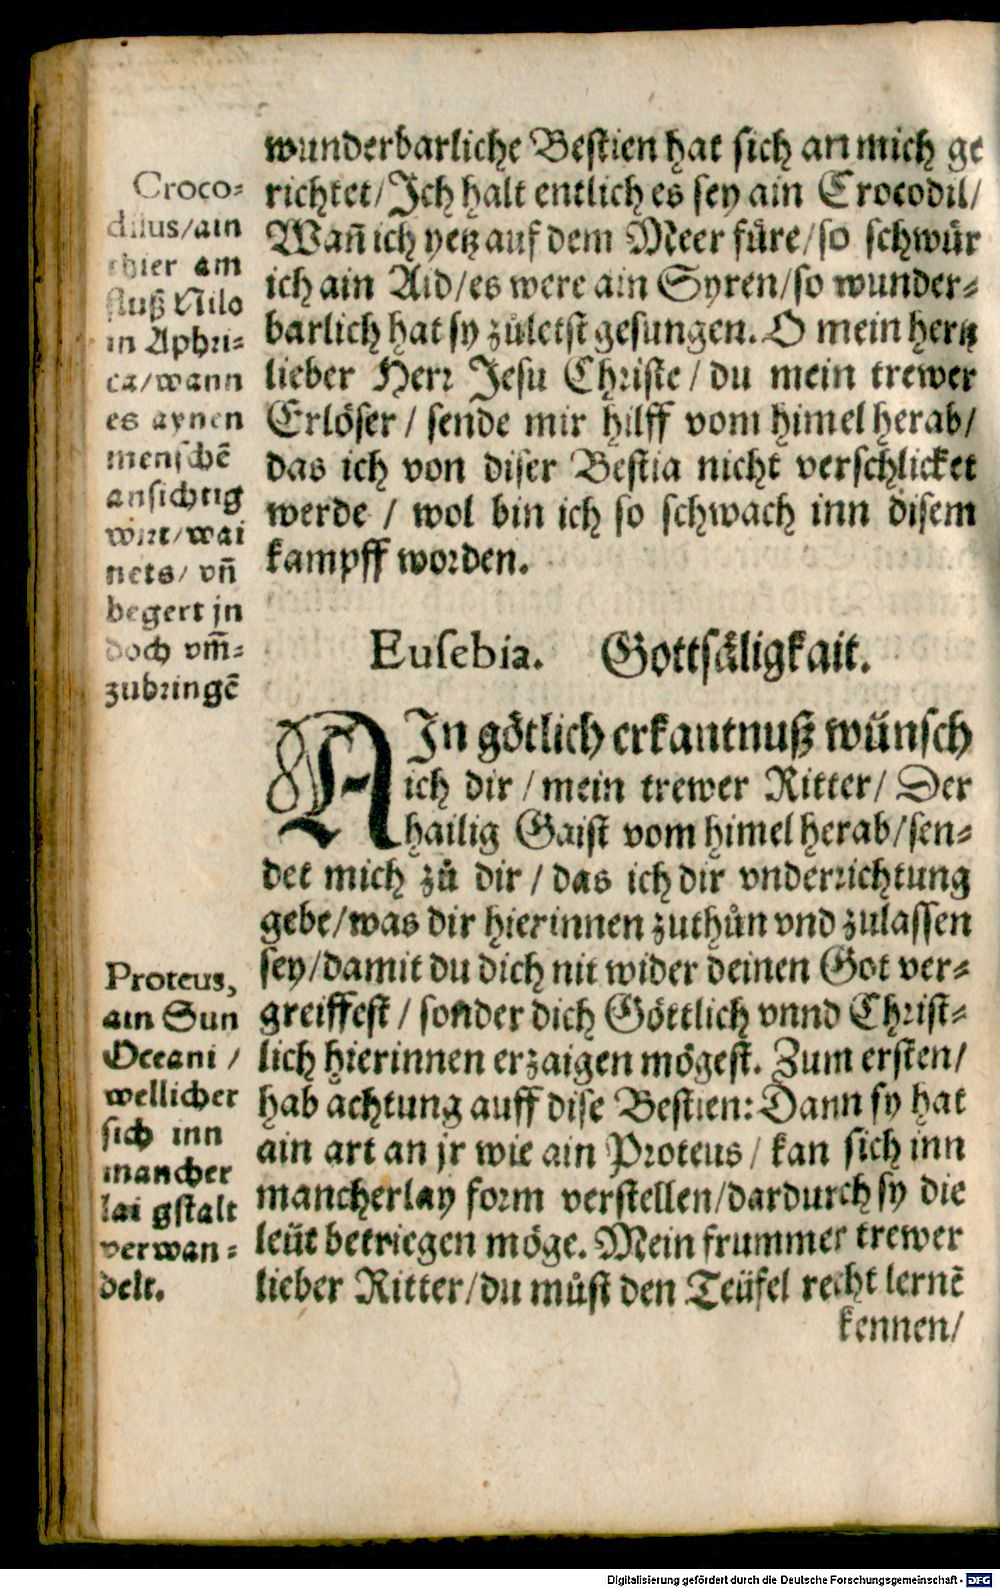 wunderbarliche Bestien hat sich an mich ge
richtet/Jch halt entlich es sey ain Crocodil/
Wañ ich yetz auf dem Meer fůre/so schwůr
ich ain Aid/es were ain Syren/so wunder⸗
barlich hat sy zůletst gesungen. O mein hertz
lieber Herr Jesu Christe/du mein trewer
Erlöser/sende mir hilff vom himel herab/
das ich von diser Bestia nicht verschlicket
werde/wol bin ich so schwach inn disem
kampff worden.
Croco⸗
dilus/ain
thier am
fluß Nilo
in Aphri⸗
ca/wann
es aynen
menschē
ansichtig
wirt/wai
nets/vñ
begert jn
doch vm̃⸗
zubringē
Eusebia. Gottsäligkait.
AJn götlich erkantnusz wünsch
ich dir/mein trewer Ritter/Der
hailig Gaist vom himel herab/sen⸗
det mich zů dir/das ich dir vnderrichtung
gebe/was dir hierinnen zuthůn vnd zulassen
sey/damit du dich nit wider deinen Got ver⸗
greiffest/sonder dich Göttlich vnnd Christ⸗
lich hierinnen erzaigen mögest. Zum ersten/
hab achtung auff dise Bestien: Dann sy hat
ain art an jr wie ain Proteus/kan sich inn
mancherlay form verstellen/dardurch sy die
leüt betriegen möge. Mein frummer trewer
lieber Ritter/du můst den Teüfel recht lernē
kennen/
Proteus,
ain Sun
Oceani/
wellicher
sich inn
mancher
lai gstalt
verwan⸗
delt.
Digitalisierung gefördert durch die Deutsche Forschungsgemeinschaft - DFG